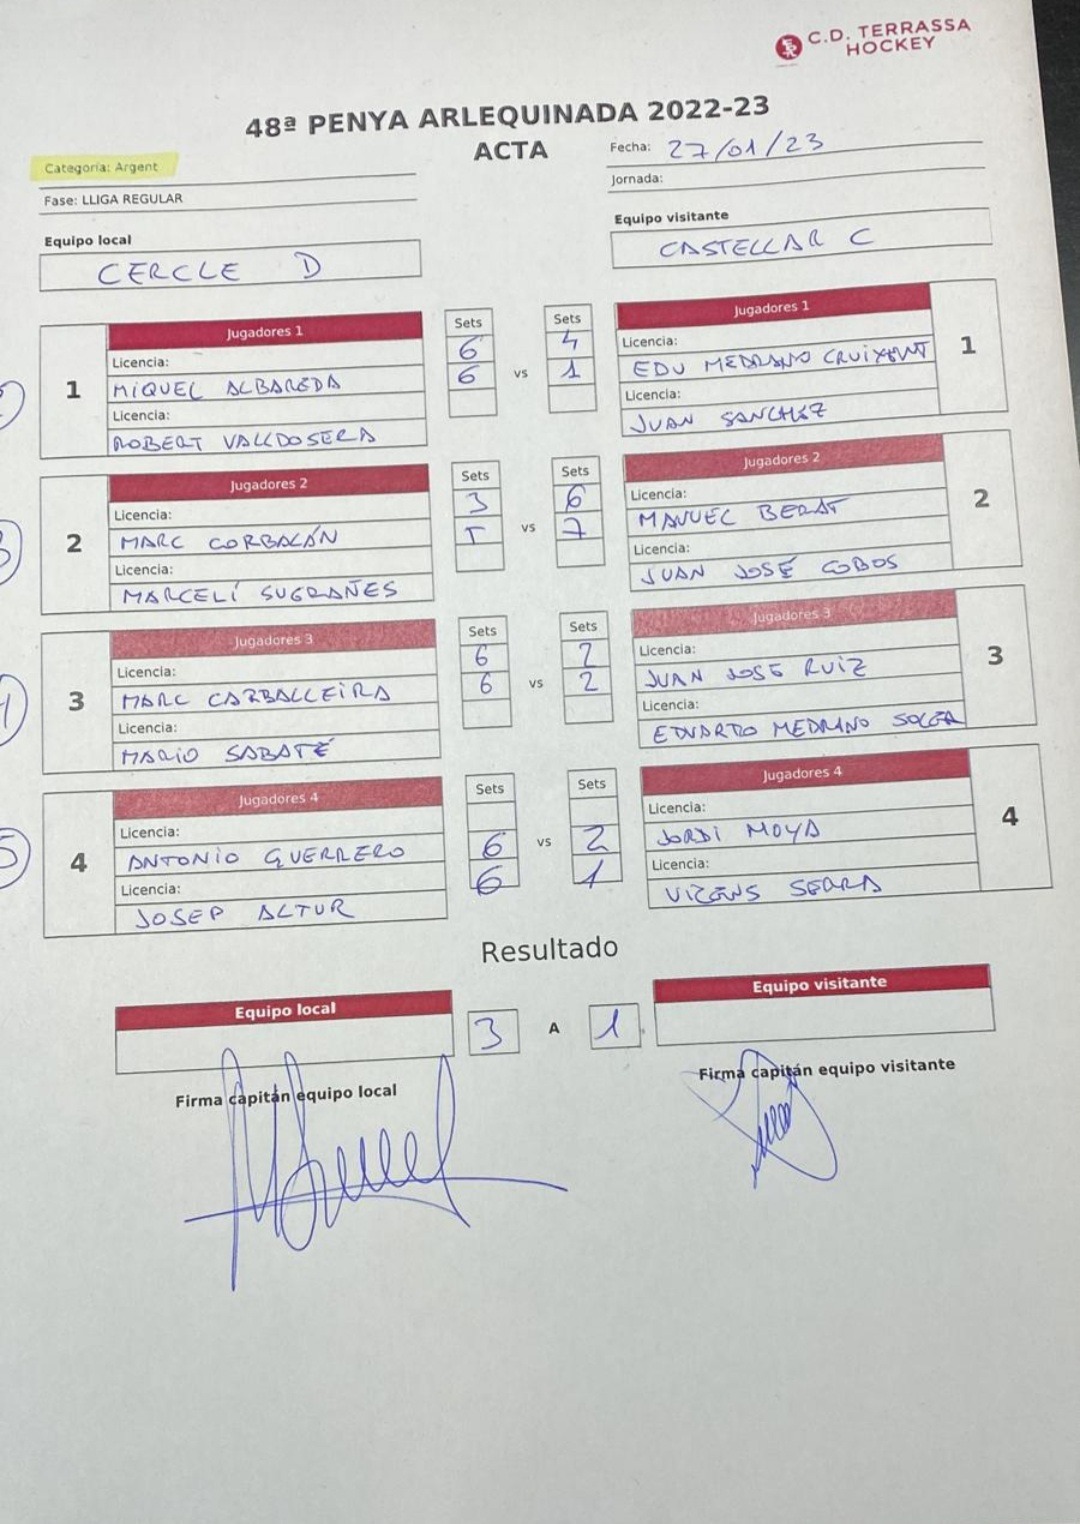 C.D. TERRASSA
HOCKEY
48ª PENYA ARLEQUINADA 2022-23
ACTA
Categoría: Argent
Fecha: 27/01/23
Fase: LLIGA REGULAR
Jornada:
Equipo local
Equipo visitante
CERCLE D
CASTELLAR C
Jugadores 1
Sets
Sets
Jugadores 1
1
Licencia:
6
4
Licencia:
1
MIQUEL ALBAREDA
6
vs
1
EDU MEDRANO CRUIXENT
Licencia:
Licencia:
ROBERT VALLDOSERA
JUAN SANCHEZ
Jugadores 2
Sets
Sets
Jugadores 2
2
Licencia:
3
6
Licencia:
2
MARC CORBALÁN
5
vs
7
MANUEL BERAT
Licencia:
Licencia:
MARCELÍ SUGRAÑES
JUAN JOSÉ COBOS
Jugadores 3
Sets
Sets
Jugadores 3
3
Licencia:
6
2
Licencia:
3
MARC CARBALLEIRA
6
vs
2
JUAN JOSE RUIZ
Licencia:
Licencia:
MARIO SABATÉ
EDUARDO MEDRANO SOLER
Jugadores 4
Sets
Sets
Jugadores 4
4
Licencia:
Licencia:
4
ANTONIO GUERRERO
6
vs
2
JORDI MOYA
Licencia:
6
1
Licencia:
JOSEP ALTUR
VIZENS SERRA
Resultado
Equipo local
Equipo visitante
3 A 1
Firma capitán equipo local
Firma capitán equipo visitante